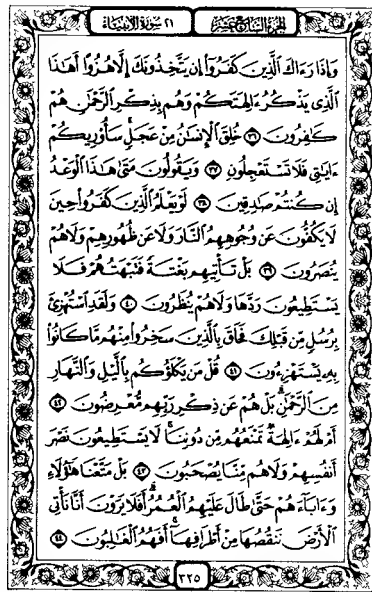 الجزء السابع عشر
٢١ سورة الأنبياء
وَإِذَا رَءَاكَ ٱلَّذِينَ كَفَرُوٓا۟ إِن يَتَّخِذُونَكَ إِلَّا هُزُوًا أَهَٰذَا
ٱلَّذِى يَذْكُرُ ءَالِهَتَكُمْ وَهُم بِذِكْرِ ٱلرَّحْمَٰنِ هُمْ
كَٰفِرُونَ ٣٦ خُلِقَ ٱلْإِنسَٰنُ مِنْ عَجَلٍ سَأُو۟رِيكُمْ
ءَايَٰتِى فَلَا تَسْتَعْجِلُونِ ٣٧ وَيَقُولُونَ مَتَىٰ هَٰذَا ٱلْوَعْدُ
إِن كُنتُمْ صَٰدِقِينَ ٣٨ لَوْ يَعْلَمُ ٱلَّذِينَ كَفَرُوا۟ حِينَ
لَا يَكُفُّونَ عَن وُجُوهِهِمُ ٱلنَّارَ وَلَا عَن ظُهُورِهِمْ وَلَا هُمْ
يُنصَرُونَ ٣٩ بَلْ تَأْتِيهِم بَغْتَةً فَتَبْهَتُهُمْ فَلَا
يَسْتَطِيعُونَ رَدَّهَا وَلَا هُمْ يُنظَرُونَ ٤٠ وَلَقَدِ ٱسْتُهْزِئَ
بِرُسُلٍ مِّن قَبْلِكَ فَحَاقَ بِٱلَّذِينَ سَخِرُوا۟ مِنْهُم مَّا كَانُوا۟
بِهِۦ يَسْتَهْزِءُونَ ٤١ قُلْ مَن يَكْلَؤُكُم بِٱلَّيْلِ وَٱلنَّهَارِ
مِنَ ٱلرَّحْمَٰنِ بَلْ هُمْ عَن ذِكْرِ رَبِّهِم مُّعْرِضُونَ ٤٢
أَمْ لَهُمْ ءَالِهَةٌ تَمْنَعُهُم مِّن دُونِنَا لَا يَسْتَطِيعُونَ نَصْرَ
أَنفُسِهِمْ وَلَا هُم مِّنَّا يُصْحَبُونَ ٤٣ بَلْ مَتَّعْنَا هَٰٓؤُلَآءِ
وَءَابَآءَهُمْ حَتَّىٰ طَالَ عَلَيْهِمُ ٱلْعُمُرُ أَفَلَا يَرَوْنَ أَنَّا نَأْتِى
ٱلْأَرْضَ نَنقُصُهَا مِنْ أَطْرَافِهَآ أَفَهُمُ ٱلْغَٰلِبُونَ ٤٤
٣٢٥